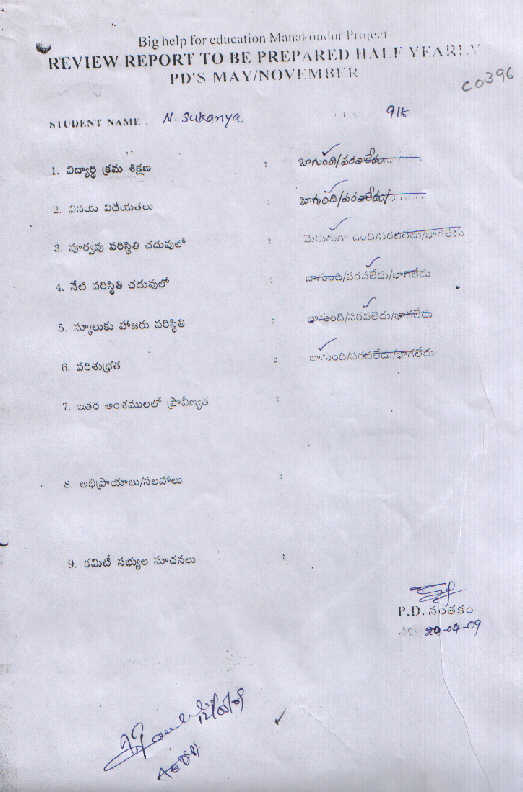 Big help for education Manakondur Project
REVIEW REPORT TO BE PREPARED HALF YEARLY
PD'S MAY/NOVEMBER
C0396
STUDENT NAME : N. Sukanya
1. విద్యార్థి క్రమ శిక్షణ : బాగుంది/పరవాలేదు
2. వినయ విధేయతలు : బాగుంది/పరవాలేదు/
3. పూర్వపు పరిస్థితి చదువులో : మెరుగుగా ఉంది/పరవాలేదు/బాగలేదు
4. నేటి పరిస్థితి చదువులో : బాగుంది/పరవలేదు/బాగలేదు
5. స్కూలుకు హాజరు పరిస్థితి : బాగుంది/పరవలేదు/బాగలేదు
6. పరిశుభ్రత : బాగుంది/పరవలేదు/బాగలేదు
7. ఇతర అంశములలో ప్రావీణ్యత :
8. అభిప్రాయాలు/సలహాలు :
9. కమిటీ సభ్యుల సూచనలు :
P.D. సంతకం